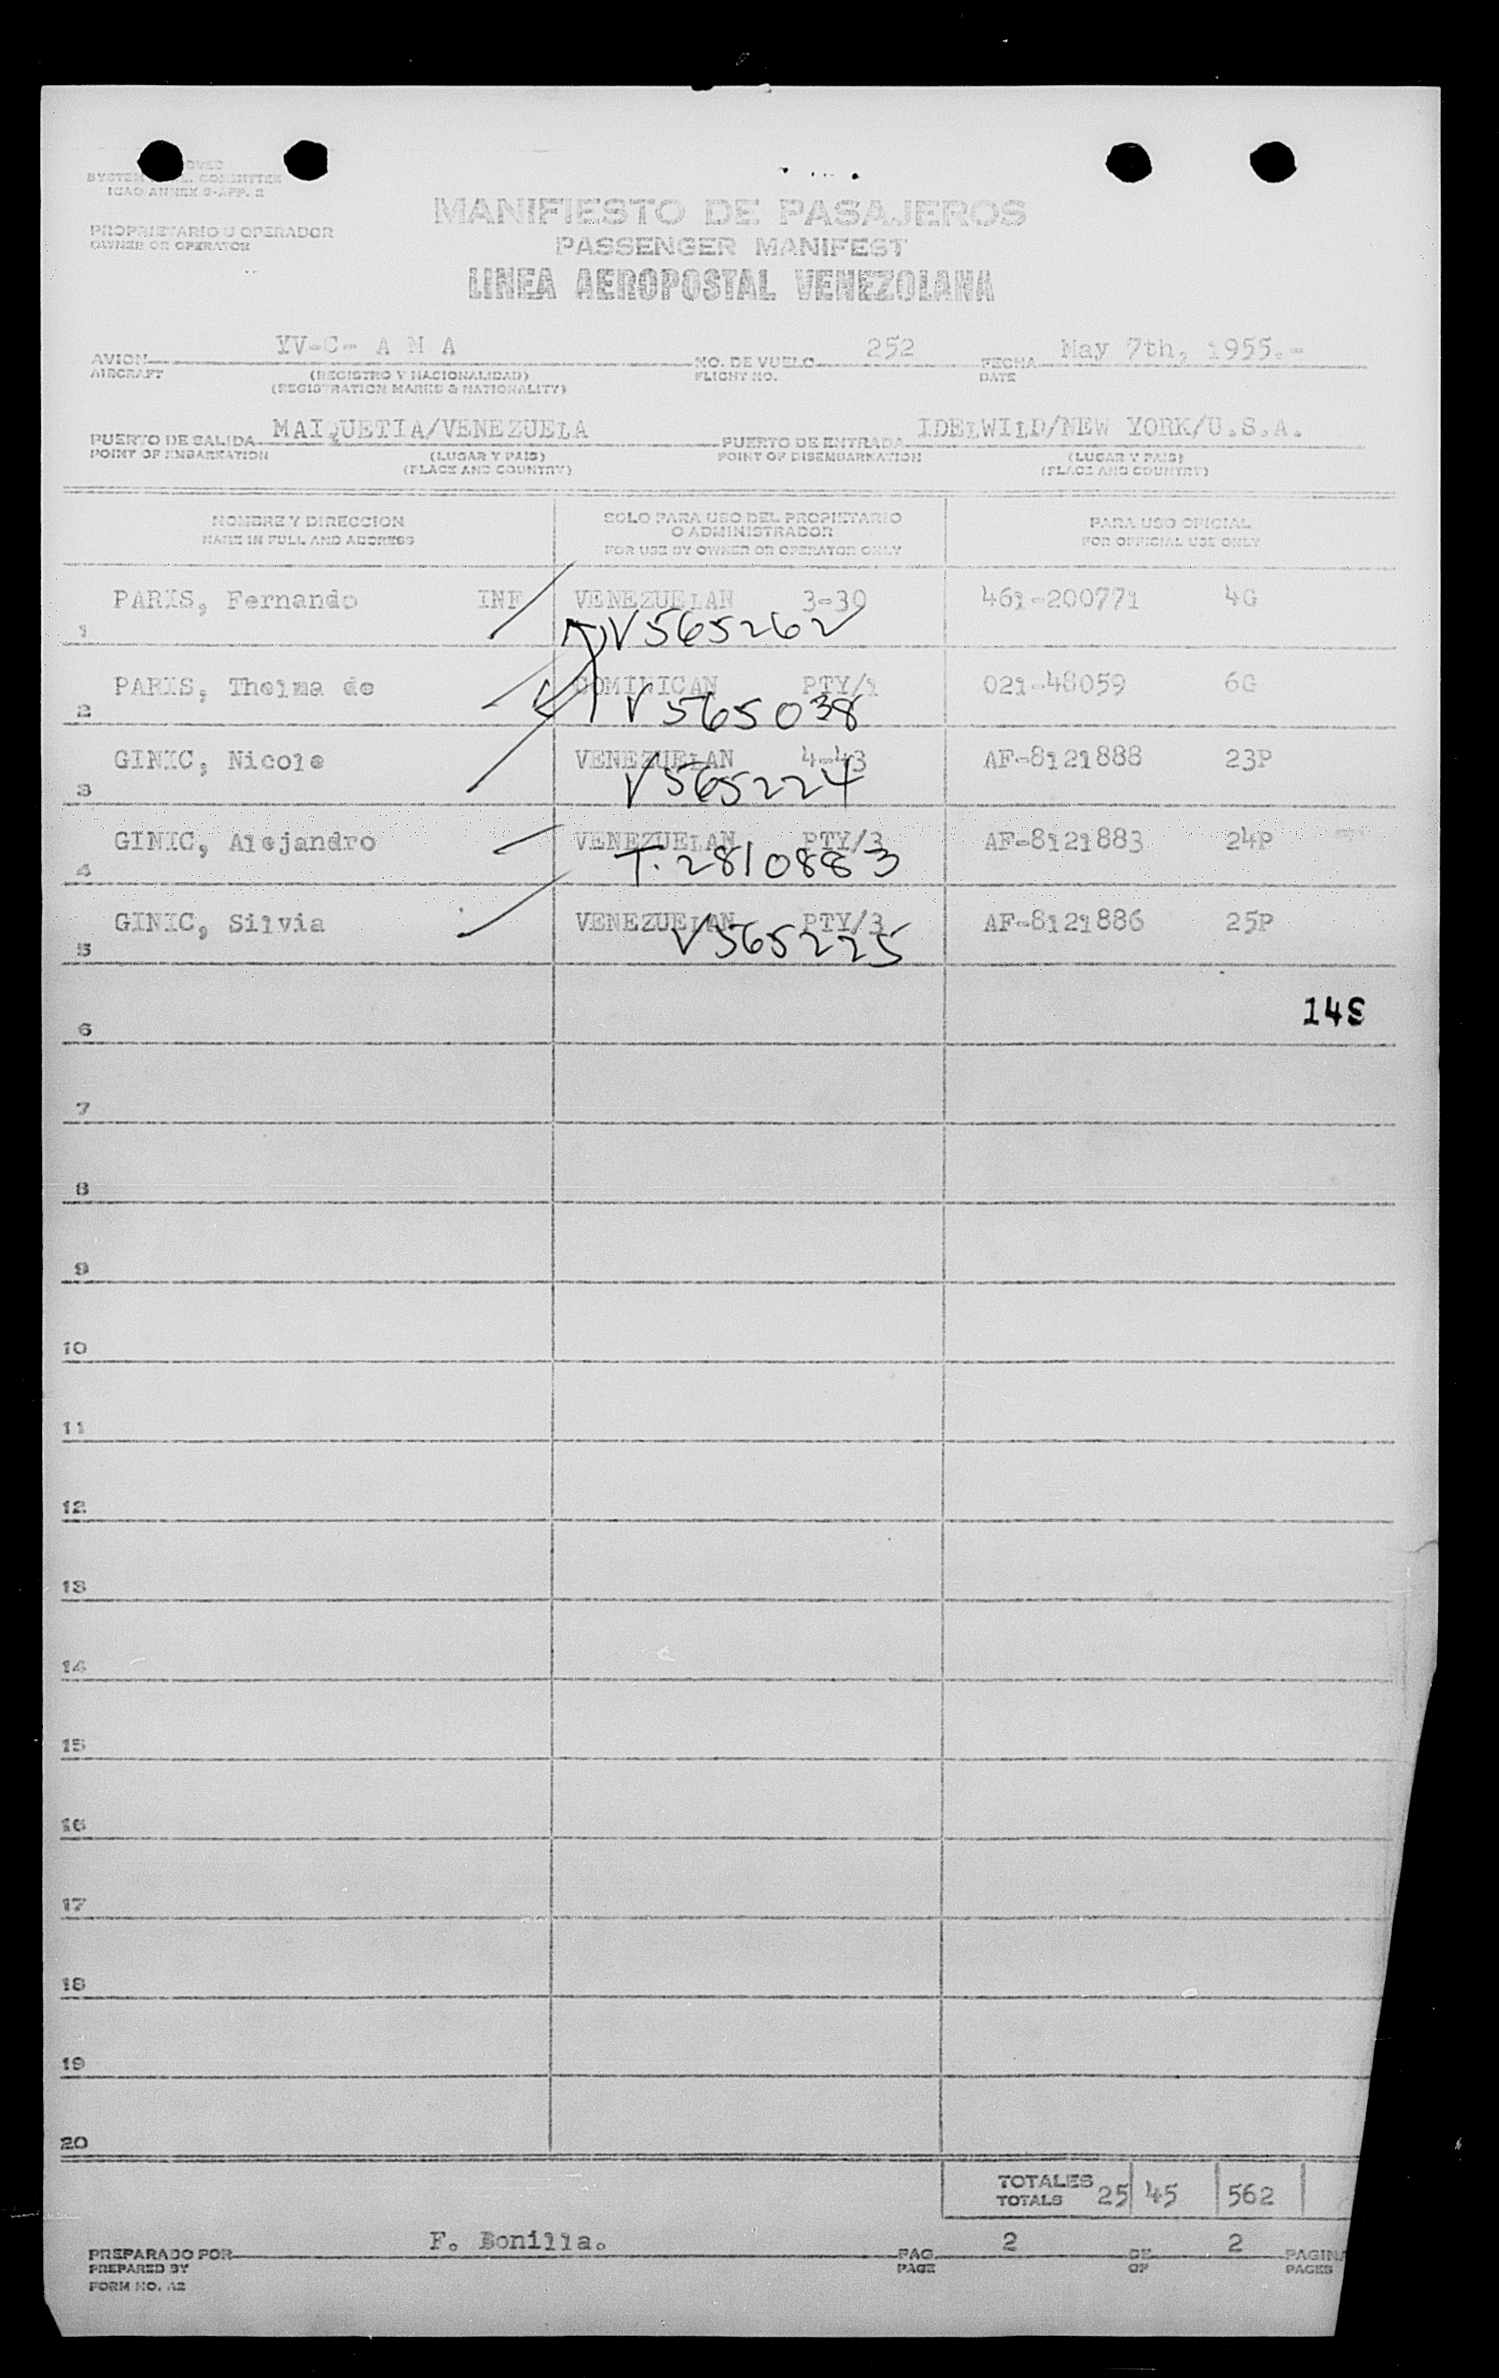 SYSTEM
ICAO ANNEX 9-APP. 2
MANIFIESTO DE PASAJEROS
PROPRIETARIO U OPERADOR
OWNER OR OPERATOR
PASSENGER MANIFEST
LINEA AEROPOSTAL VENEZOLANA
AVION YV-C- A M A NO. DE VUELO 252 FECHA May 7th, 1955.-
AIRCRAFT (REGISTRO Y NACIONALIDAD) FLIGHT NO. DATE
(REGISTRATION MARKS & NATIONALITY)
PUERTO DE SALIDA MAIQUETIA/VENEZUELA PUERTO DE ENTRADA IDELWILD/NEW YORK/U.S.A.
POINT OF EMBARKATION (LUGAR Y PAIS) POINT OF DISEMBARKATION (LUGAR Y PAIS)
(PLACE AND COUNTRY) (PLACE AND COUNTRY)
NOMBRE Y DIRECCION SOLO PARA USO DEL PROPIETARIO PARA USO OFICIAL
O ADMINISTRADOR
NAME IN FULL AND ADDRESS FOR USE BY OWNER OR OPERATOR ONLY FOR OFFICIAL USE ONLY
PARIS, Fernando INF VENEZUELAN 3-30 461-200771 4G
1 V565262
PARIS, Thelma de DOMINICAN PTY/1 021-48059 6G
2 V565038
GINIC, Nicole VENEZUELAN 4-43 AF-8121888 23P
3 V565224
GINIC, Alejandro VENEZUELAN PTY/3 AF-8121883 24P
4 T. 2810883
GINIC, Silvia VENEZUELAN PTY/3 AF-8121886 25P
5 V565225
6
7
8
9
10
11
12
13
14
15
16
17
18
19
20
TOTALES 25 45 562
TOTALS
PREPARADO POR F. Bonilla. PAG. 2 DE 2
PREPARED BY PAGE OF PAGES
FORM NO. A2